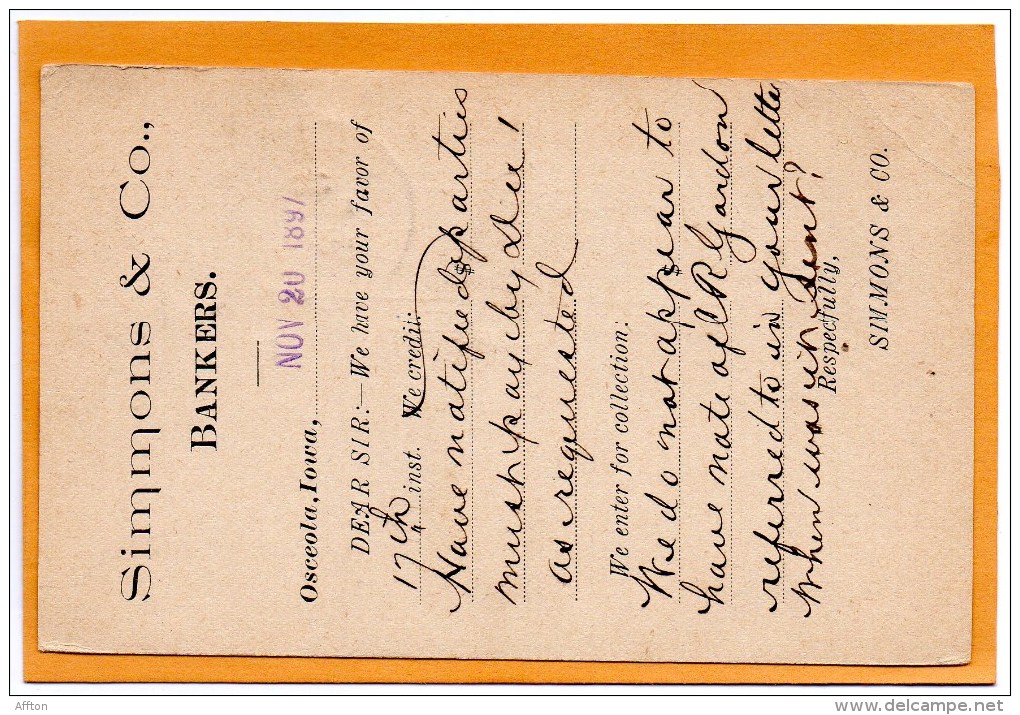 Simmons & Co.,
BANKERS.
NOV 20 1897
Osceola, Iowa,
DEAR SIR:—We have your favor of
17th inst. We credit:
Have notified parties
must pay by Dec 1
as requested
We enter for collection:
We do not appear to
have note of R Gordon
referred to in your letter
When was it sent?
Respectfully,
SIMMONS & CO.
Affton
delcampe.net